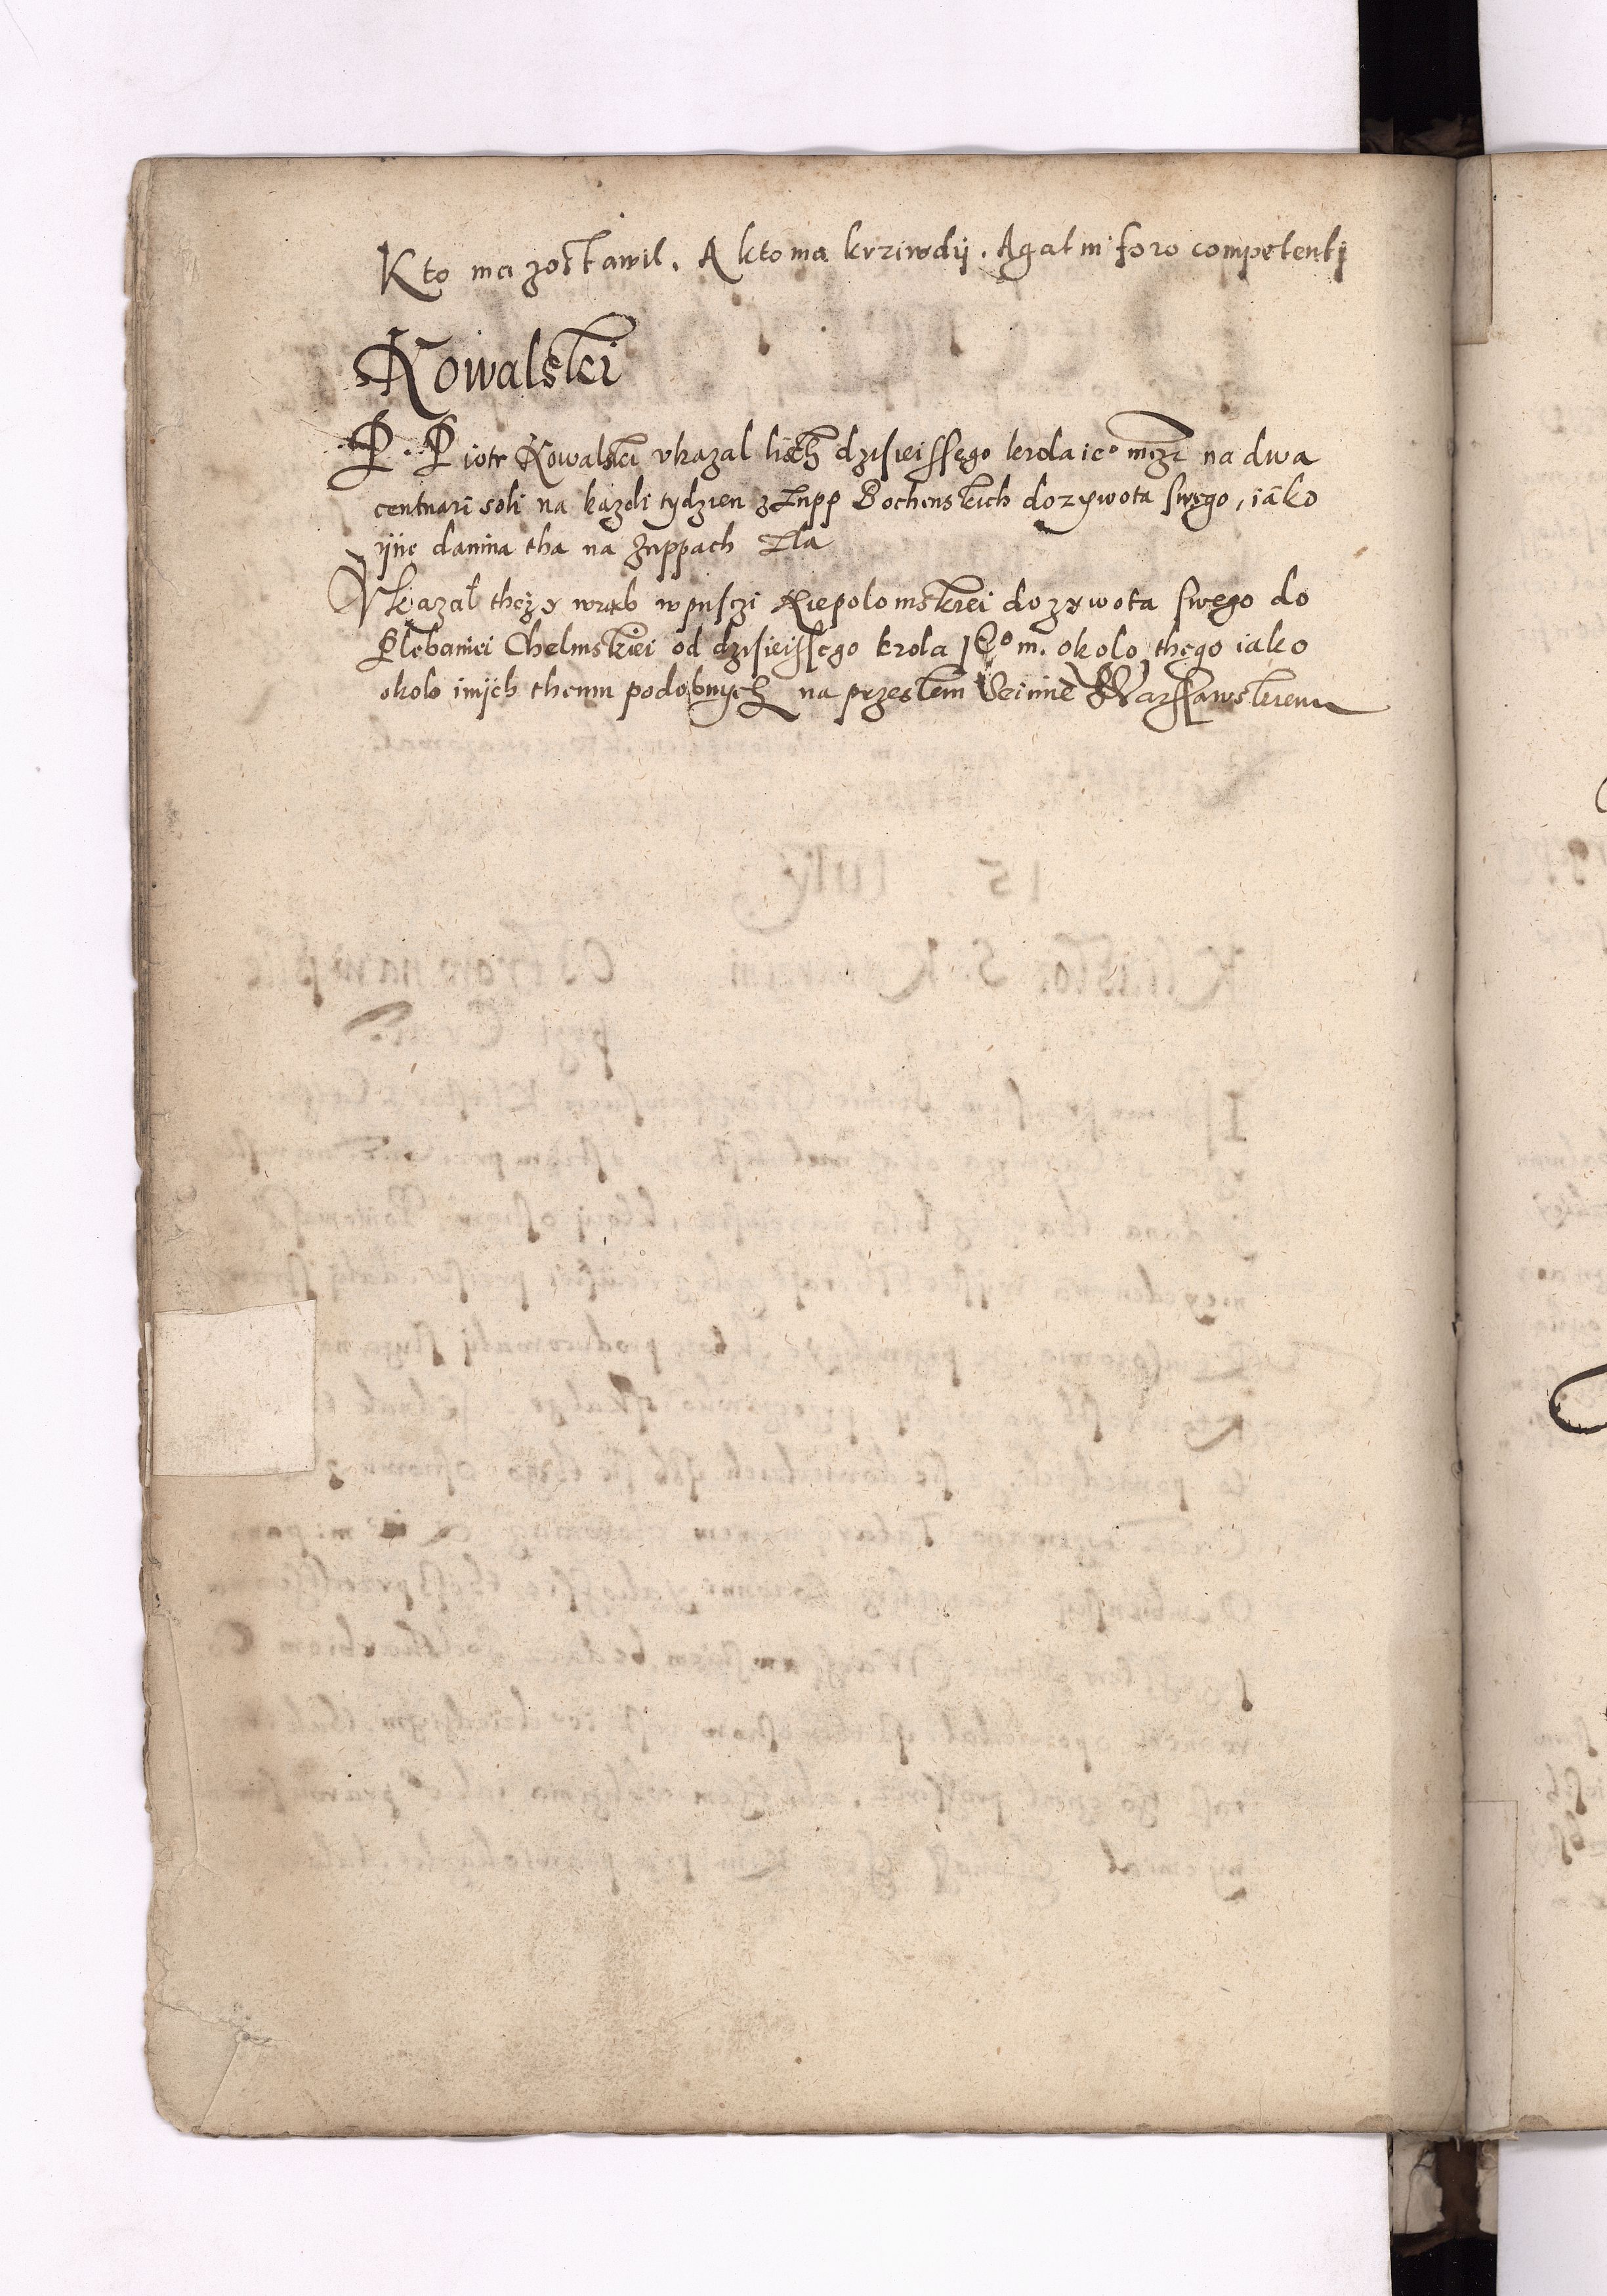 Kto ma zostawil. A kto ma krziwdÿ. Agat in foro competentj
Kowalski
P. Piotr Kowalski vkazal listh dzisieissego krola ic° mczi na dwa
centnari soli na kazdi tydzien z Zupp Bochenskich do zywota swego, iako
ÿne danina tha na Zuppach
Vkazal thez y wrąb w pusczi Niepolomskiei do zywota swego do
Plebaniei Chelmskiei od dzisieissego krola J° m. okolo thego iako
okolo inÿch themu podobnych na przeslem Seimie Warssawskiem